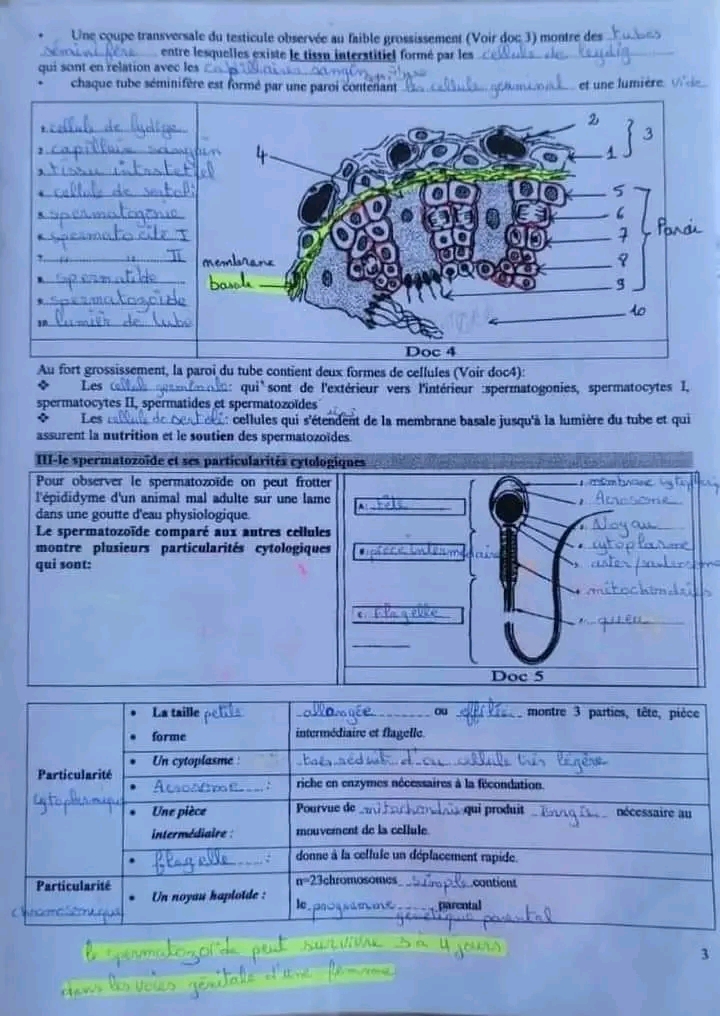 • Une coupe transversale du testicule observée au faible grossissement (Voir doc 3) montre des tubes
séminifère entre lesquelles existe le tissu interstitiel formé par les cellule de leydig
qui sont en relation avec les capillaires sanguin
• chaque tube séminifère est formé par une paroi contenant les cellule germinal et une lumière vide
1. cellule de lydige
2. capillaire sanguin
3. tissu intrstetiel
4. cellule de sertoli
5. spermatogonie
6. spermatocite I
7. " " II
8. spermatide
9. spermatozoïde
10. lumièr de tube
4
2
3
1
5
6
7
8
9
10
Paroi
membrane
basale
Doc 4
Au fort grossissement, la paroi du tube contient deux formes de cellules (Voir doc4):
❖ Les cellule germinale: qui sont de l'extérieur vers l'intérieur :spermatogonies, spermatocytes I,
spermatocytes II, spermatides et spermatozoïdes
❖ Les cellule de sertoli: cellules qui s'étendent de la membrane basale jusqu'à la lumière du tube et qui
assurent la nutrition et le soutien des spermatozoïdes.
III-le spermatozoïde et ses particularités cytologiques
Pour observer le spermatozoïde on peut frotter
l'épididyme d'un animal mal adulte sur une lame
dans une goutte d'eau physiologique.
Le spermatozoïde comparé aux autres cellules
montre plusieurs particularités cytologiques
qui sont:
A: tête
B: pièce intermédiaire
C: Flagelle
1. membrane
2. Acrosome
3. Noyau
4. cytoplasme
5. aster/
6. mitochondries
7. queu
Doc 5
Particularité
cytoplasmique
• La taille petite
• forme
allongée ou effilée montre 3 parties, tête, pièce
intermédiaire et flagelle.
• Un cytoplasme :
très réduit d'ou cellule très légère
• Acrosome :
riche en enzymes nécessaires à la fécondation.
• Une pièce
intermédiaire :
Pourvue de mitochondrie qui produit Energie nécessaire au
mouvement de la cellule.
• flagelle :
donne à la cellule un déplacement rapide.
Particularité
chromosomique
• Un noyau haploïde :
n=23chromosomes simple contient
le programme parental
génétique parental
le spermatozoïde peut survivre 3 à 4 jours
dans les voies génitale d'une femme
3